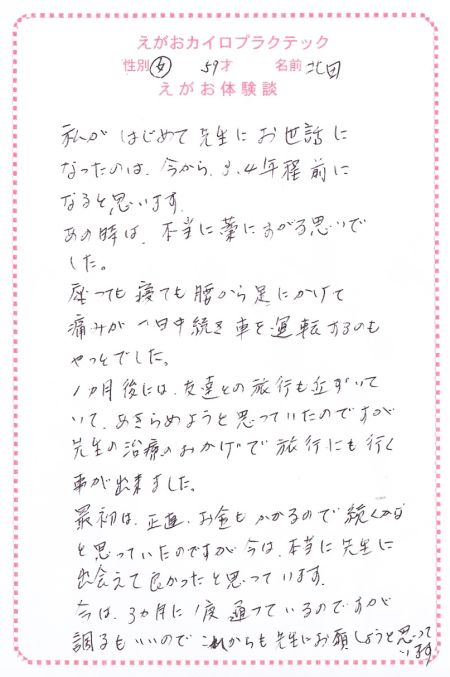 えがおカイロプラクテック
性別 女 59才 名前 北田
えがお体験談
私が はじめて 先生に お世話に
なったのは、今から、3、4年程前に
なると思います。
あの時は、本当に藁にすがる思いで
した。
座っても 寝ても 腰から足にかけて
痛みが 一日中続き 車を運転するのも
やっとでした。
1カ月後には、友達との旅行も近ずいて
いて、あきらめようと思っていたのですが
先生の治療のおかげで 旅行にも行く
事が出来ました。
最初は、正直、お金も かかるので 続くかな
と思っていたのですが 今は、本当に先生に
出会えて良かったと思っています。
今は、3カ月に1度 通っているのですが
調子もいいので これからも先生にお願しようと思って
います